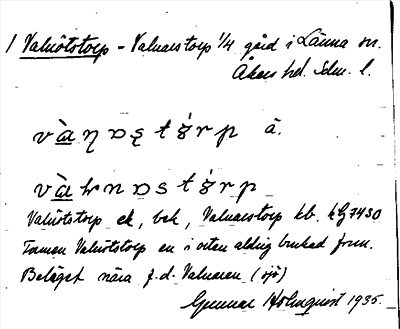 1 Valnötstorp - Valnarstorp 1/4 gård i Länna sn.
Åkers hd. Sdm. l.
vàŋɒʂtórp ä.
vàɬnɒstórp
Valnötstorp ek, bek, Valnarstorp kb. kg 7430
Formen Valnötstorp en i orten aldrig brukad form.
Beläget nära f.d. Valnaren (sjö)
Gunnar Holmquist 1935.